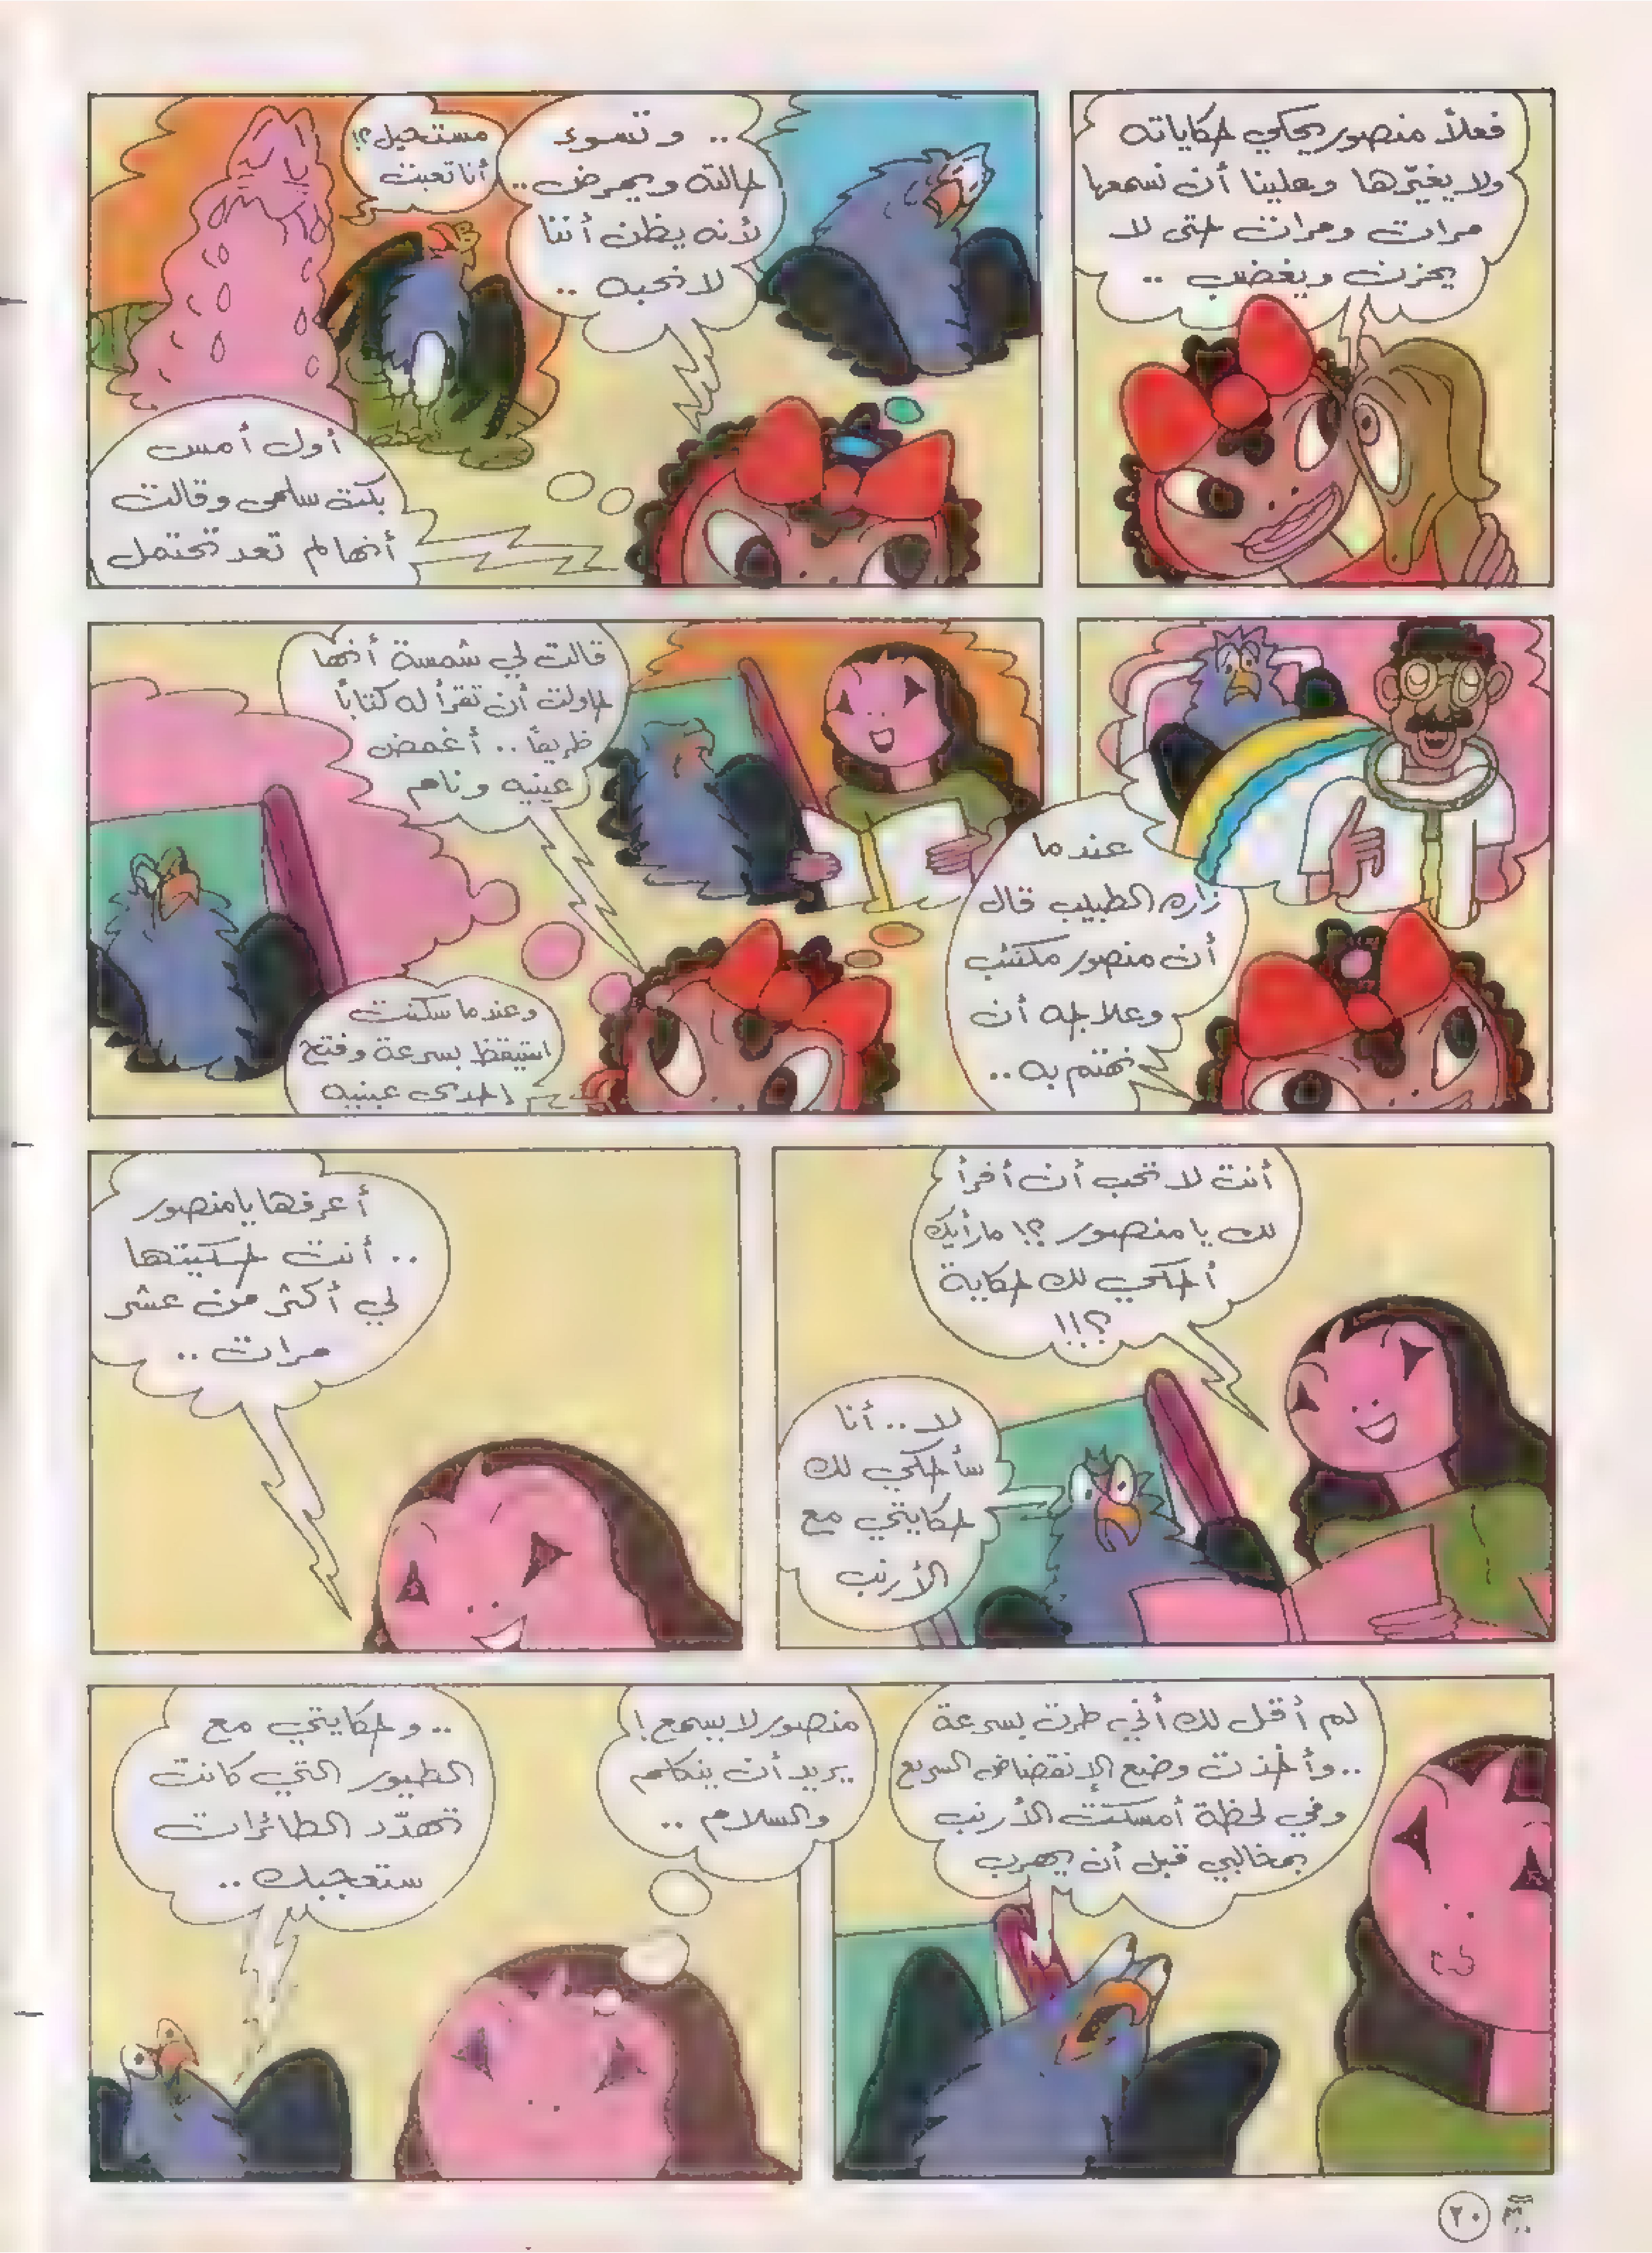 فعلاً منصور يحكي حكاياته
ولا يغيّرها وعلينا أن نسمعها
مرات ومرات حتى لا
يحزن ويغضب ..
.. وتسوء
حالته ويمرض ..
لأنه يظن أننا
لا نحبه ..
مستحيل ؟!
أنا تعبت
أول أمس
بكت سلمى وقالت
أنها لم تعد تحتمل
عندما
زاره الطبيب قال
أن منصور مكتئب
وعلاجه أن
نهتم به ..
قالت لي شمسة أنها
حاولت أن تقرأ له كتاباً
ظريفاً .. أغمض
عينيه ونام
وعندما سكتت
استيقظ بسرعة وفتح
احدى عينيه
أنت لا تحب أن أقرأ
لك يا منصور ؟! ما رأيك
أحكي لك حكاية
؟!!
لا .. أنا
سأحكي لك
حكايتي مع
الأرنب
أعرفها يا منصور
.. أنت حكيتها
لي أكثر من عشر
مرات ..
لم أقل لك أني طرت بسرعة
.. وأخذت وضع الإنقضاض السريع
وفي لحظة أمسكت الأرنب
بمخالبي قبل أن يهرب
منصور لا يسمع !
يريد أن يتكلم
والسلام ..
.. وحكايتي مع
الطيور التي كانت
تهدّد الطائرات
ستعجبك ..
٢٠